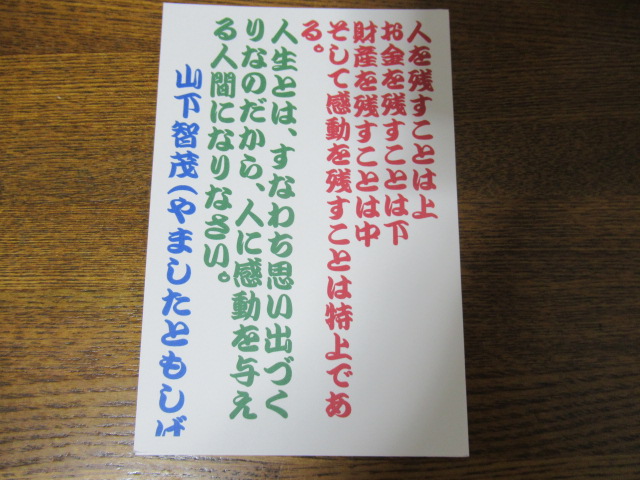 人を残すことは上
お金を残すことは下
財産を残すことは中
そして感動を残すことは特上であ
る。
人生とは、すなわち思い出づく
りなのだから、人に感動を与え
る人間になりなさい。
山下智茂(やましたともしげ